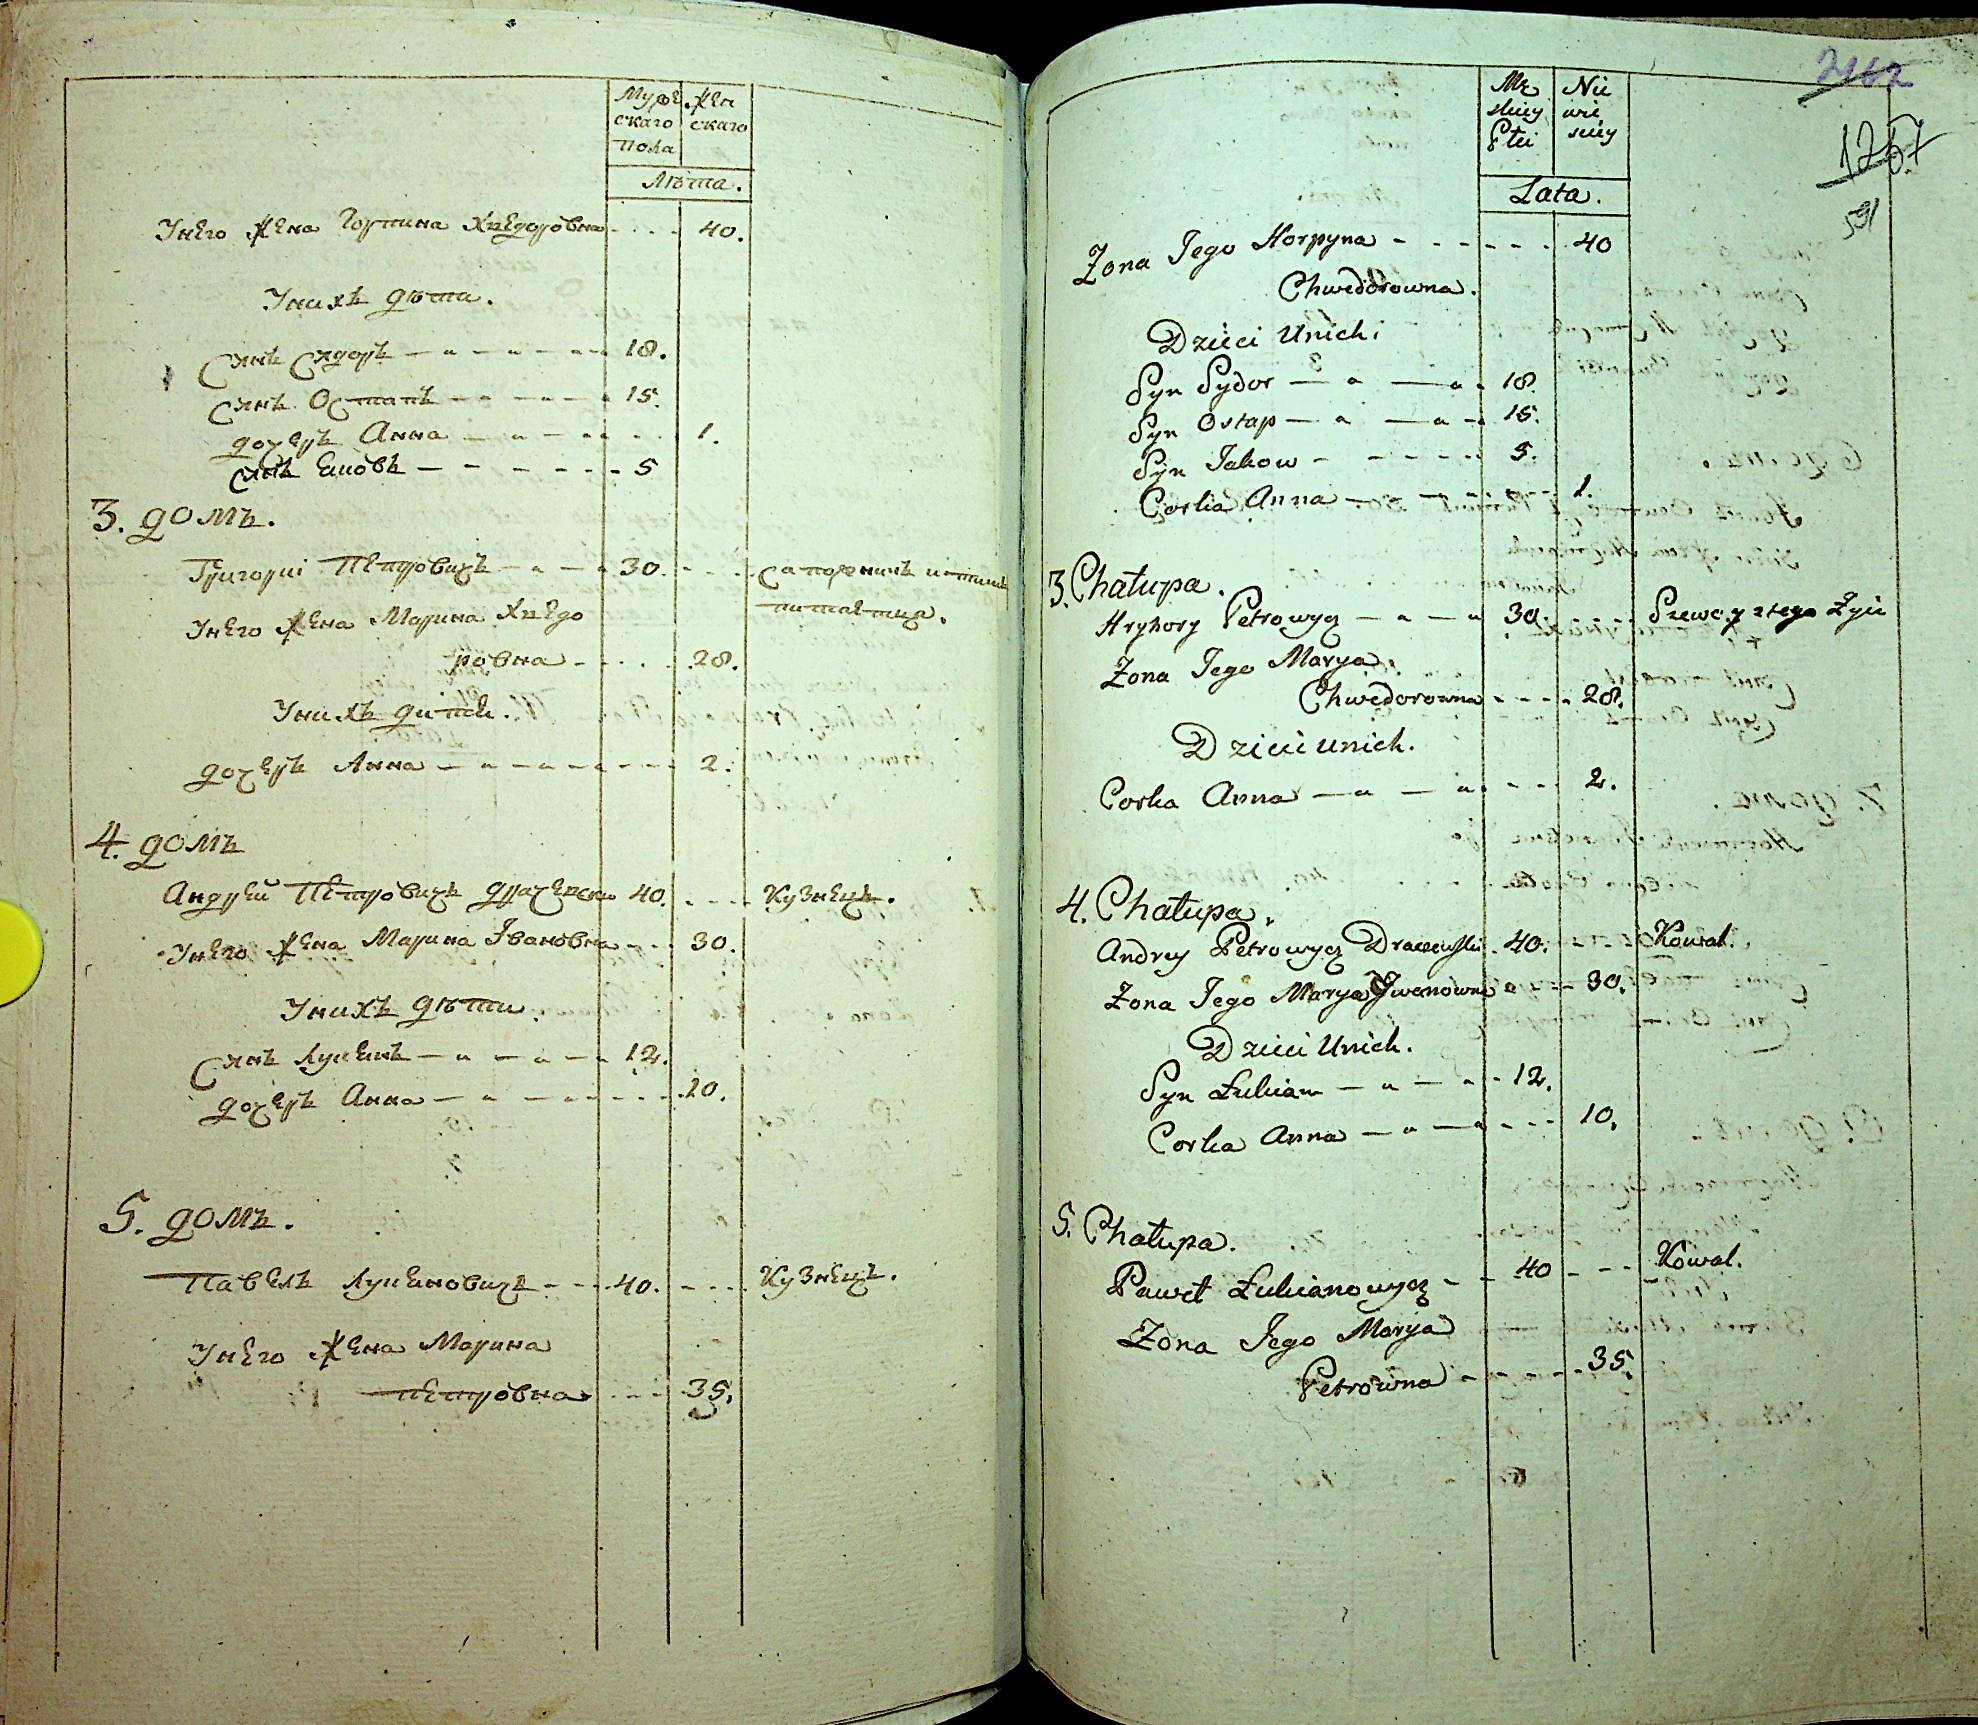 Мужескаго пола
Женскаго
Лѣта.
Унего жена Горпина Хведоровна 40.
Унихъ дѣти.
Сынъ Сядоръ 18.
Сынъ Остапъ 15.
дочеръ Анна 1.
Сынъ Яковъ 5
3. домъ.
Григорiи Петровичъ 30. Сапожникъ
Унего жена Марина Хведо
ровна 28.
Унихъ дѣти.
дочеръ Анна 2.
4. домъ
Андрей Петровичъ 40. Кузнецъ.
Унего жена Марина Iвановна 30.
Унихъ дѣти.
Сынъ Лукянъ 12.
дочеръ Анна 10.
5. домъ.
Павелъ Лукяновичъ 40. Кузнецъ.
Унего жена Марина
Петровна 35.
1257
591
Męskiey Płci
Niewieściey
Lata.
Zona Jego Horpyna 40
Chwedorowna.
Dzieci Unich:
Syn Sydor 18.
Syn Ostap 15.
Syn Jakow 5.
Corka Anna 1.
3. Chałupa.
Hryhory Petrowycz 30 Szewc y z tego Żyie
Zona Jego Marya
Chwedorowna 28.
Dzieci unich.
Corka Anna 2.
4. Chałupa.
Andrey Petrowycz Draczewski 40. Kowal.
Zona Jego Marya Jwanowna 30.
Dzieci Unich.
Syn Łukian 12.
Corka Anna 10.
5. Chałupa.
Paweł Łukianowycz 40 Kowal.
Zona Jego Marya
Petrowna 35.